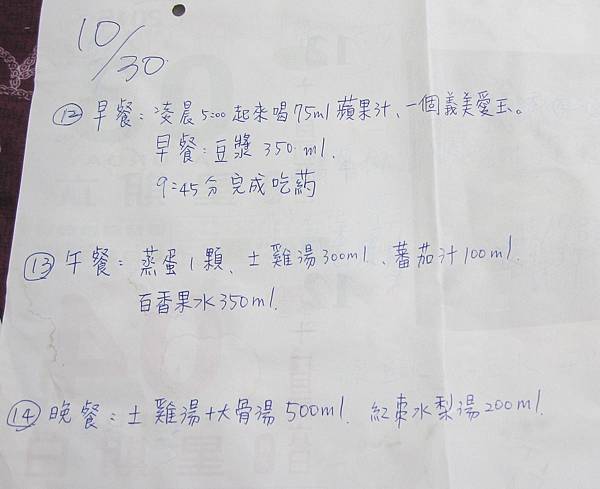 10/30
⑫ 早餐：凌晨5:00起來喝75ml蘋果汁、一個義美愛玉。
早餐：豆漿 350 ml.
9:45分完成吃葯
⑬ 午餐：蒸蛋1顆、土雞湯300ml、蕃茄汁100ml.
百香果水350ml.
⑭ 晚餐：土雞湯+大骨湯500ml、紅棗水梨湯200ml.